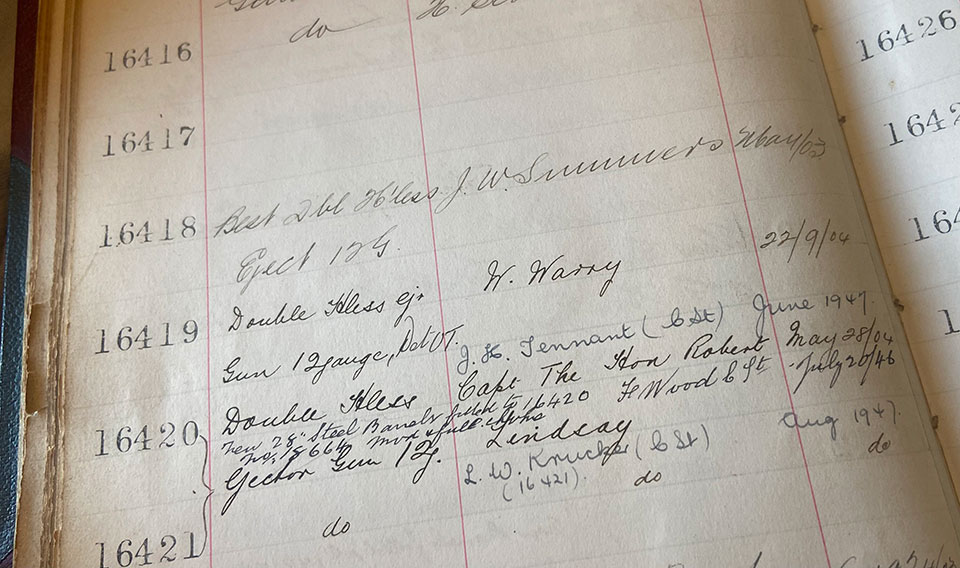 16416 do
16417
16418 Best Dbl H'less J. W. Summers May/03
Eject 12 G.
22/9/04
16419 Double Hless ejr W. Warry
Gun 12 gauge, Det O.T. J. H. Tennant (C St) June 1947.
16420 Double Hless Capt The Hon Robert May 28/04
New 28" Steel Barrels fitted to 16420 F Wood C St July 20/46
No. 18664 Mod & full choke
Ejector Gun 12g. Lindsay
L. W. Krucker (C St) Aug 1947
(16421).
16421 do do do
16426
1642
164
1